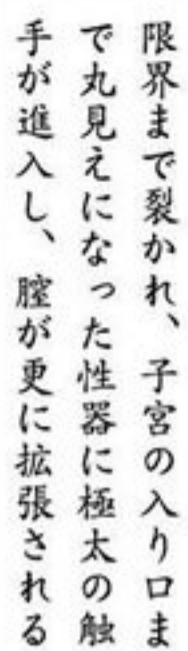 限界まで裂かれ、子宮の入り口ま
で丸見えになった性器に極太の触
手が進入し、膣が更に拡張される